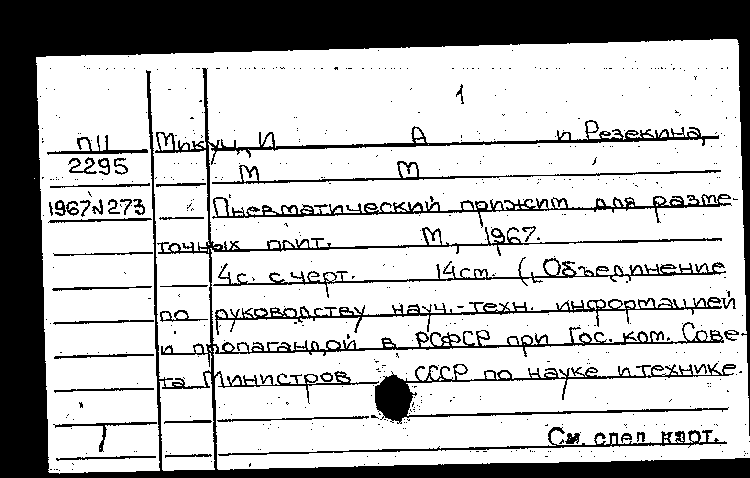 1
П11 Микуч, И А и Резекина,
2295 М М
1967N273 Пневматический прижим для разме-
точных плит. М., 1967.
4 с. с черт. 14 см. (Объединение
по руководству науч.-техн. информацией
и пропагандой в РСФСР при Гос. ком. Сове-
та Министров СССР по науке и технике.
См. след карт.